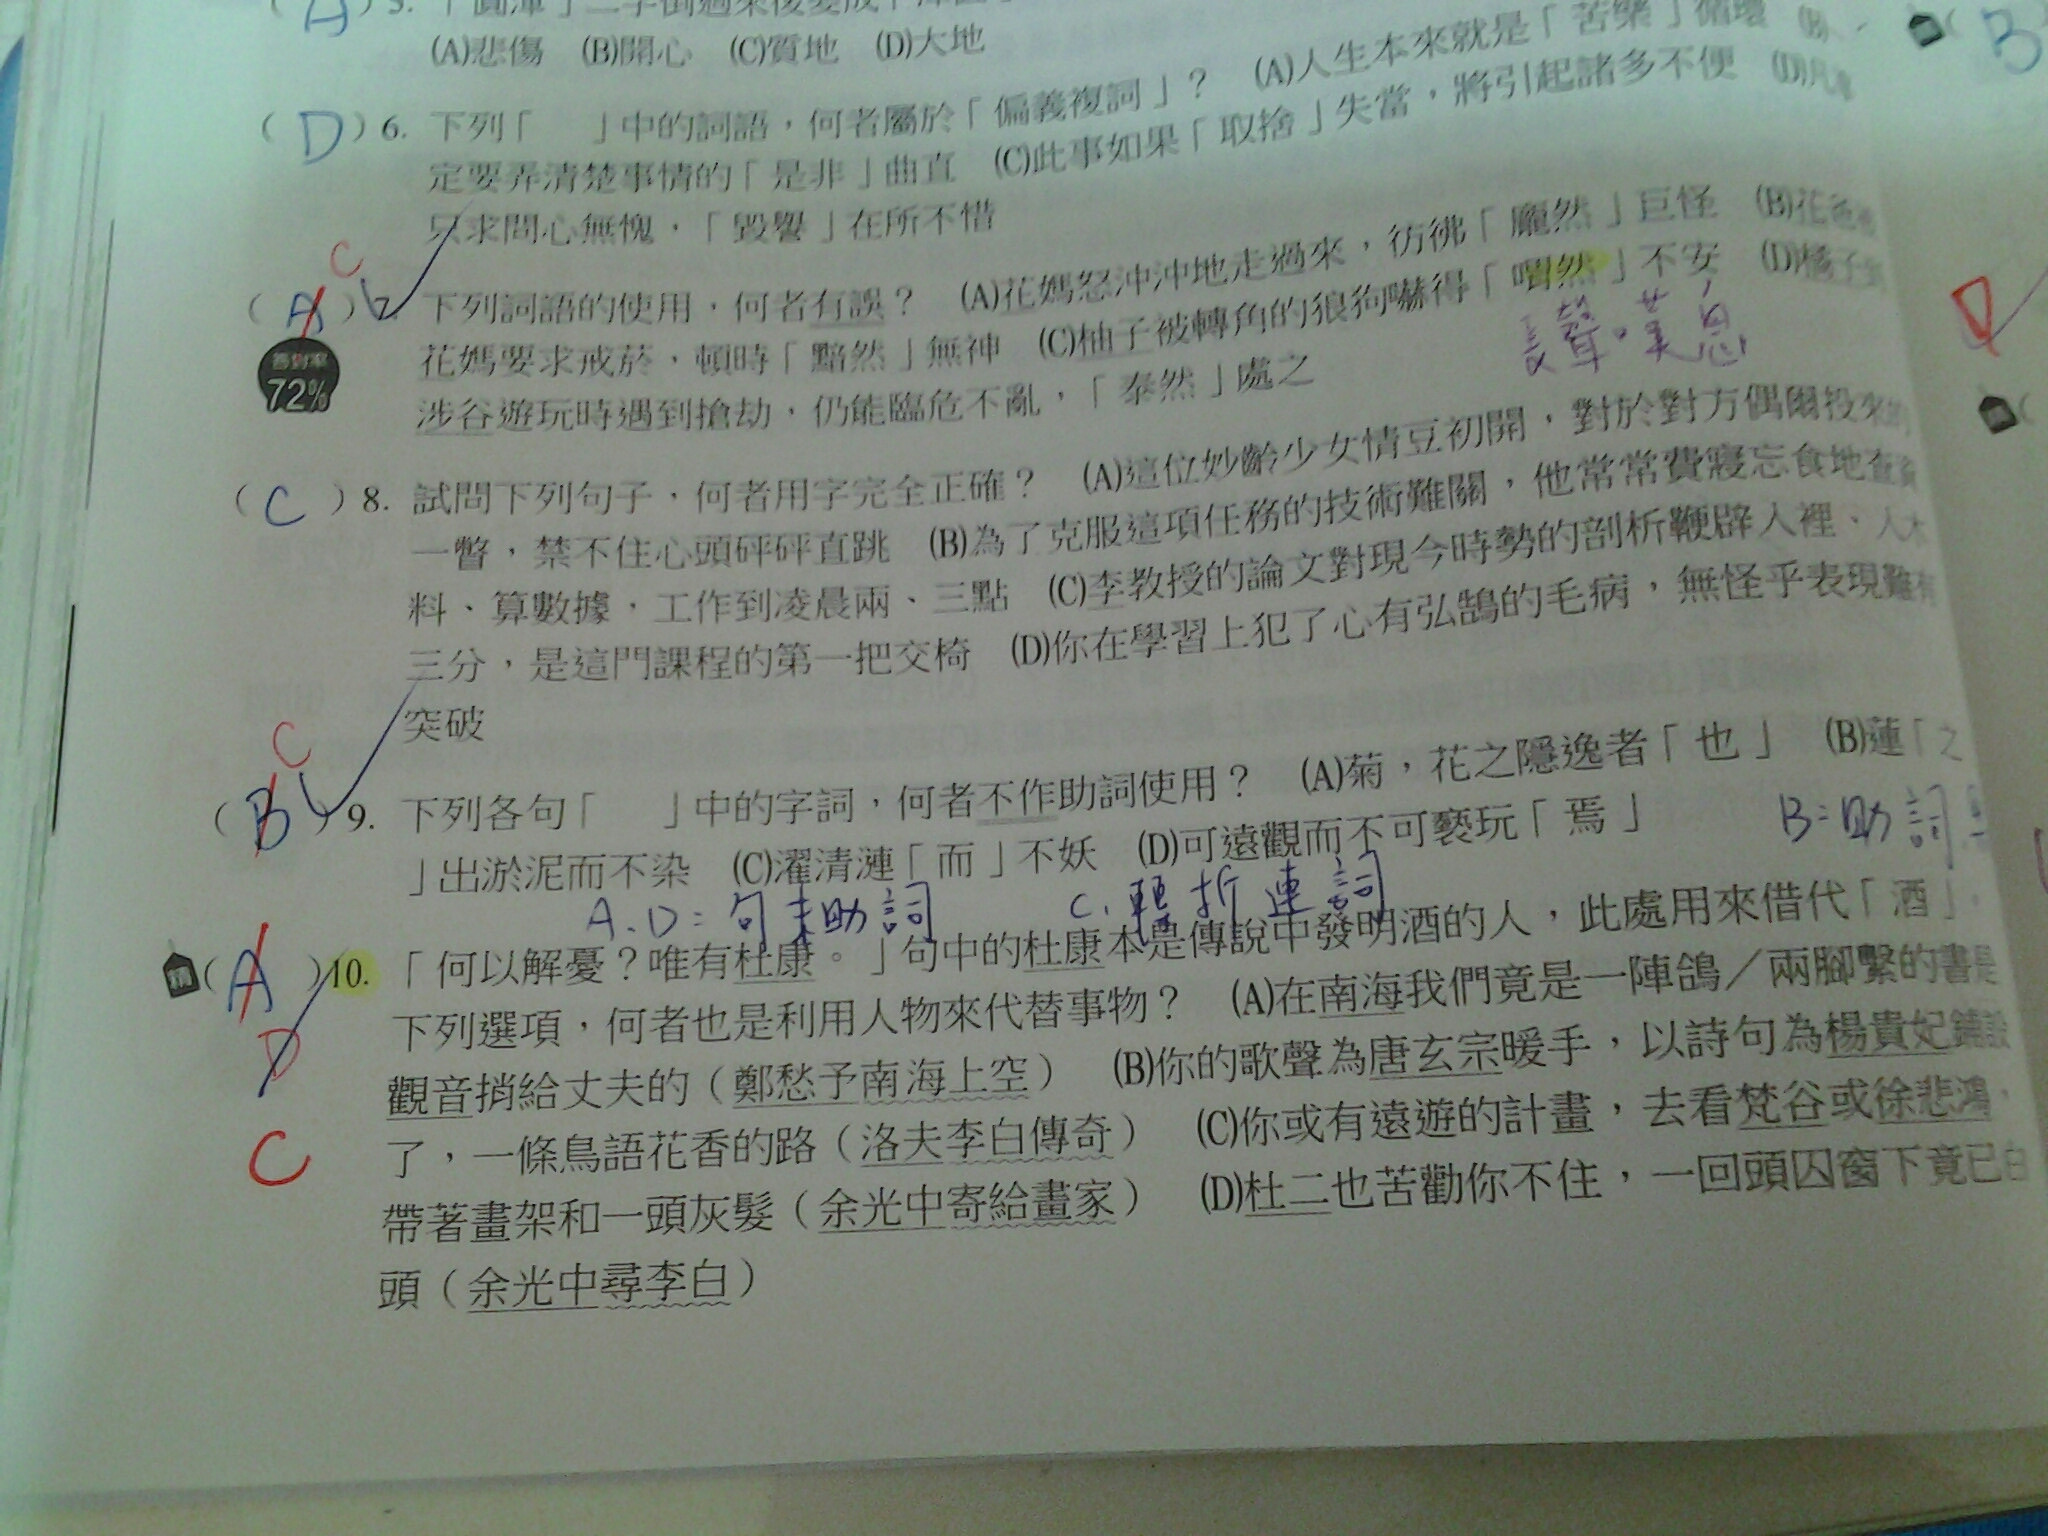 (A)悲傷 (B)開心 (C)質地 (D)大地
( D ) 6. 下列「 」中的詞語，何者屬於「偏義複詞」？ (A)人生本來就是「苦樂」循環
定要弄清楚事情的「是非」曲直 (C)此事如果「取捨」失當，將引起諸多不便
只求問心無愧，「毀譽」在所不惜
C
( A ) 下列詞語的使用，何者有誤？ (A)花媽怒沖沖地走過來，彷彿「龐然」巨怪 (B)花爸
答對率
72%
花媽要求戒菸，頓時「黯然」無神 (C)柚子被轉角的狼狗嚇得「喟然」不安， (D)橘子
長聲嘆息
涉谷遊玩時遇到搶劫，仍能臨危不亂，「泰然」處之
( C ) 8. 試問下列句子，何者用字完全正確？ (A)這位妙齡少女情豆初開，對於對方偶爾投來的
一瞥，禁不住心頭砰砰直跳 (B)為了克服這項任務的技術難關，他常常費寢忘食地查資
料、算數據，工作到凌晨兩、三點 (C)李教授的論文對現今時勢的剖析鞭辟人裡、入木
三分，是這門課程的第一把交椅 (D)你在學習上犯了心有弘鵠的毛病，無怪乎表現難有
突破
C
( B ) 9. 下列各句「 」中的字詞，何者不作助詞使用？ (A)菊，花之隱逸者「也」 (B)蓮「之
」出淤泥而不染 (C)濯清漣「而」不妖 (D)可遠觀而不可褻玩「焉」
B=助詞
A.D=句末助詞 C.轉折連詞
( A ) 10. 「何以解憂？唯有杜康。」句中的杜康本是傳說中發明酒的人，此處用來借代「酒」，
D
C
下列選項，何者也是利用人物來代替事物？ (A)在南海我們竟是一陣鴿／兩腳繫的書是
觀音捎給丈夫的（鄭愁予南海上空） (B)你的歌聲為唐玄宗暖手，以詩句為楊貴妃鋪設
了，一條鳥語花香的路（洛夫李白傳奇） (C)你或有遠遊的計畫，去看梵谷或徐悲鴻，
帶著畫架和一頭灰髮（余光中寄給畫家） (D)杜二也苦勸你不住，一回頭囚窗下竟已白
頭（余光中尋李白）